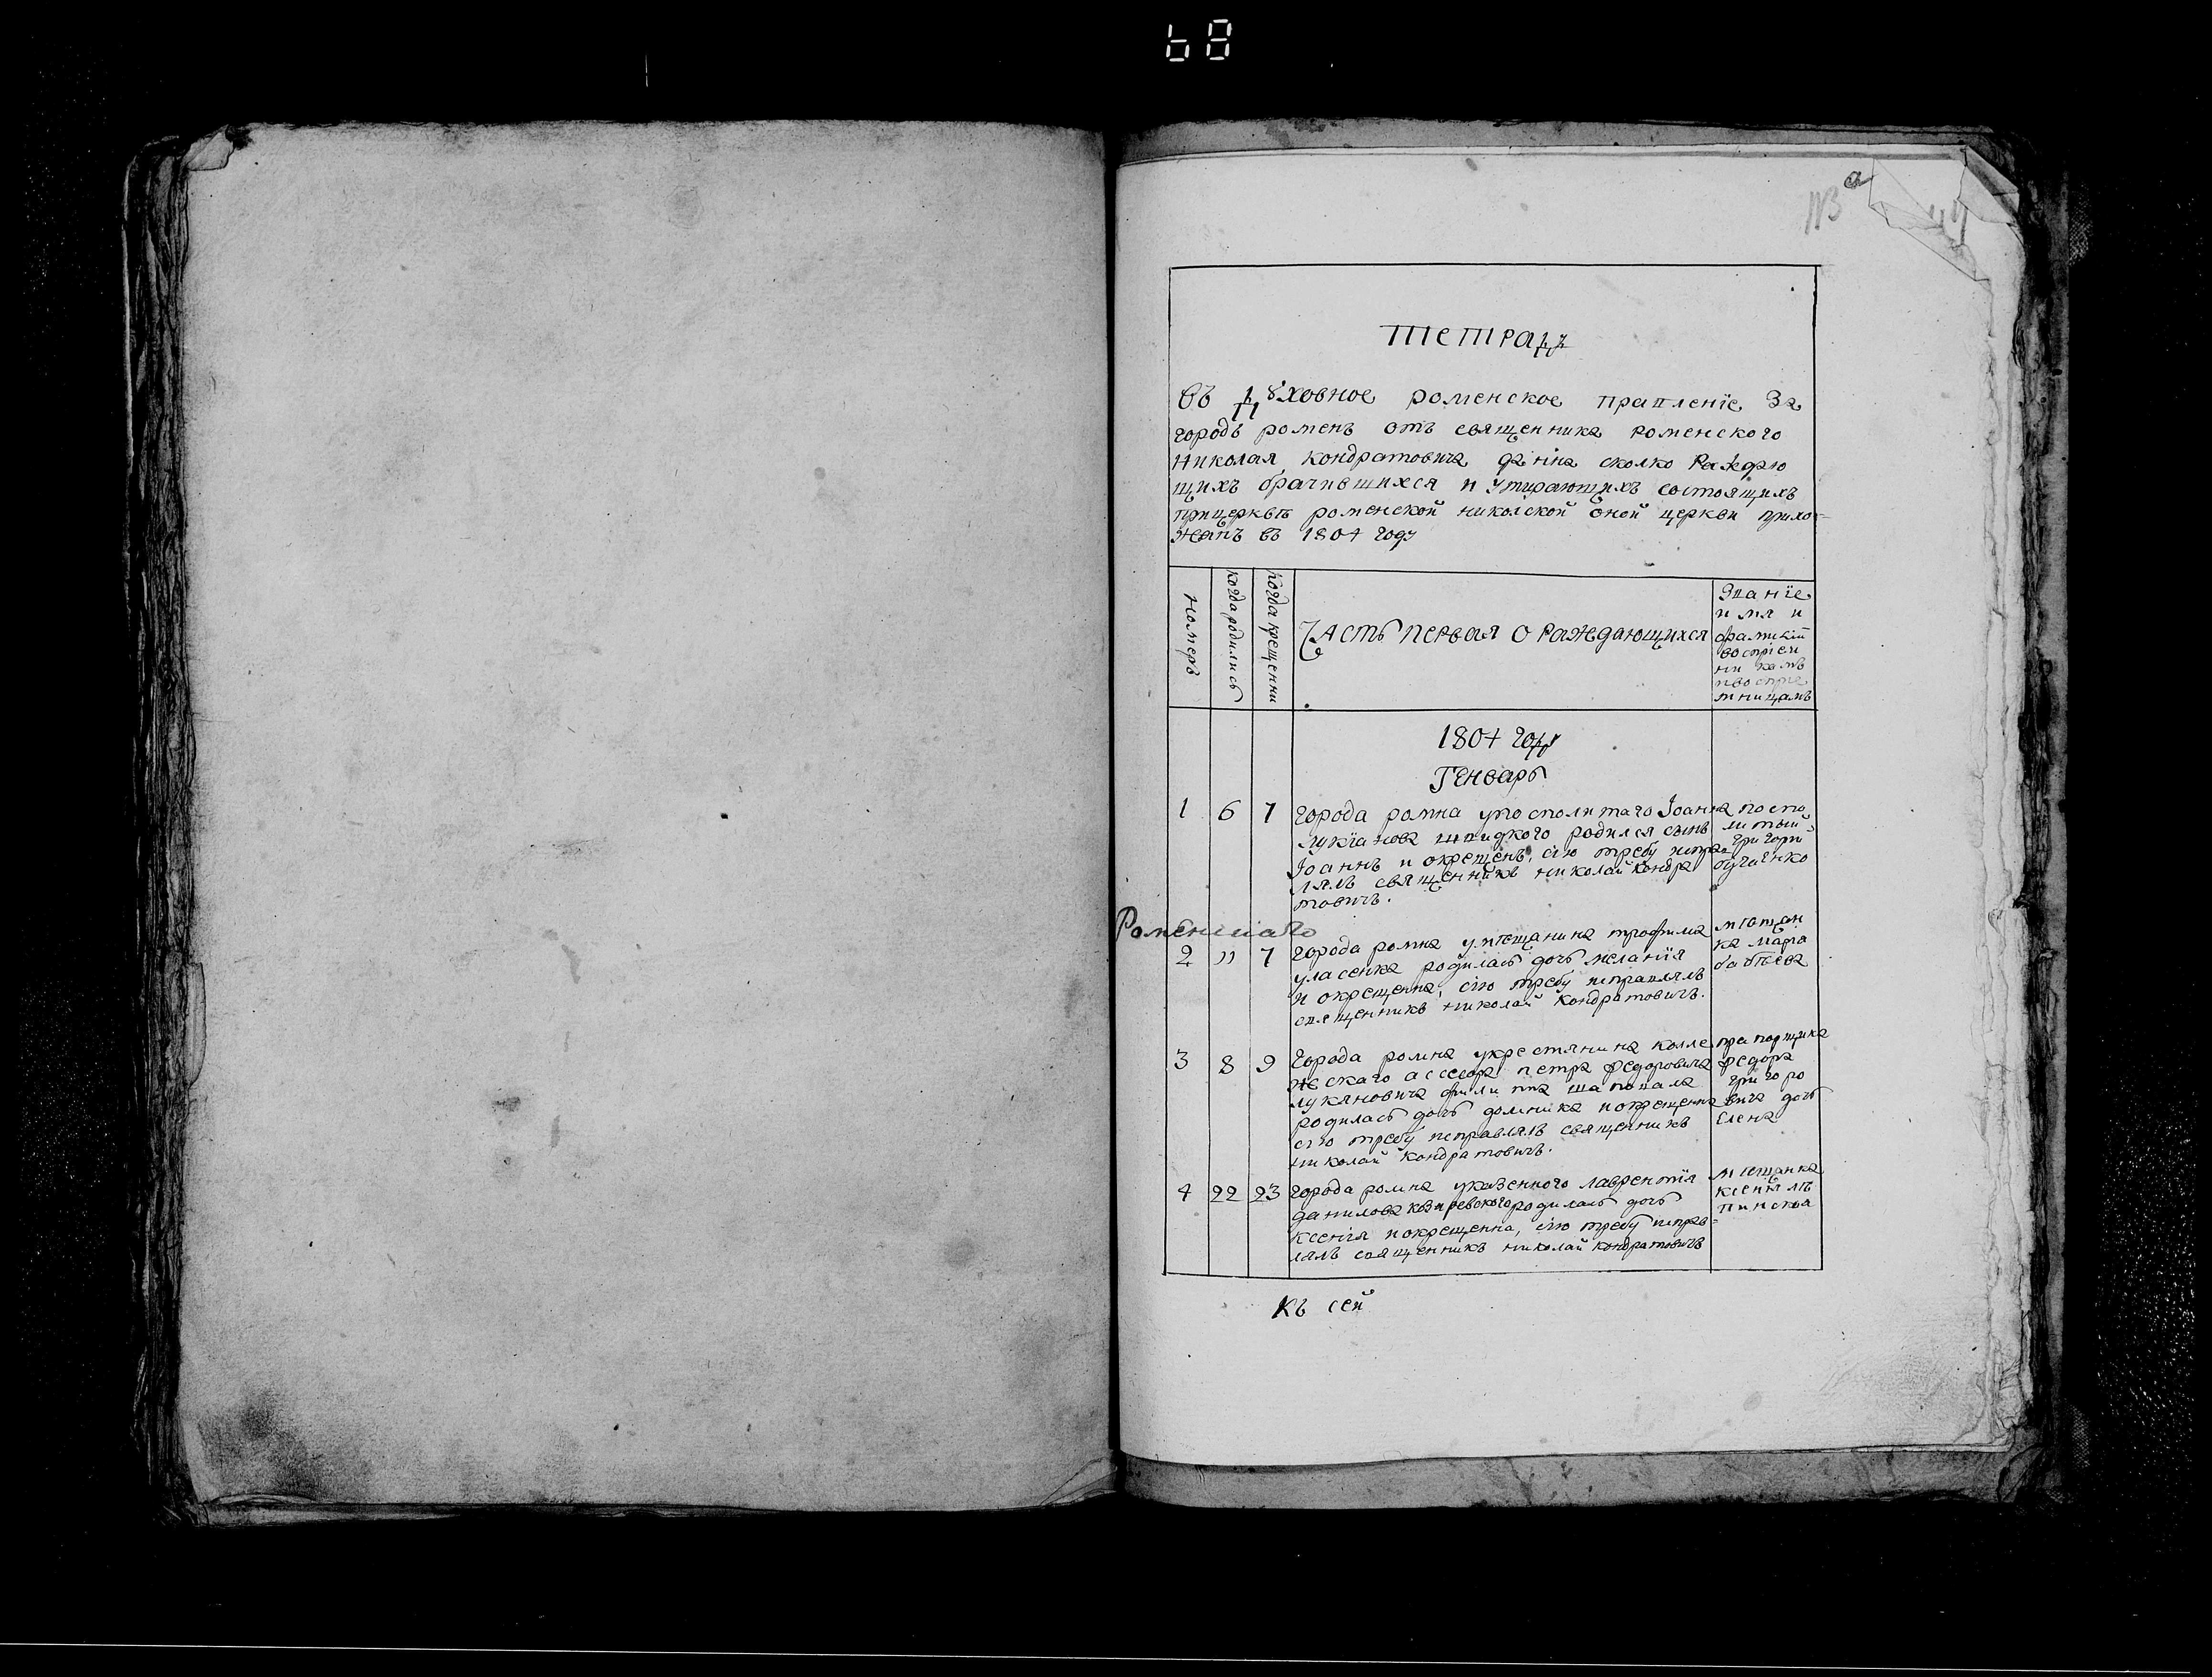 68
113 а
тетрадъ
въ дꙋховное роменское правленїе за
городъ роменъ отъ священника роменского
николая кондратовича данна сколко раждаю
щихъ брачившихся и умирающихъ состоящихъ
прицерквѣ роменской николской оной церкви прихо=
жанъ въ 1804 году
номеръ
когда родились
когда крещенни
Часть первая о раждающихся
Званїе
имя и
фамилїи
воспрїем
никамъ
ивоспрїе
мницамъ
1804 году
Генварь
1 6 7
города ромна упосполитаго Іоанна
лукїанова швидкого родился сынъ
Іоаннъ и окрещенъ, сїю требу испра=
лялъ священникъ николай кондра
товичъ.
поспо
литый
григорїй
бугаенко
Роменскаго
2 11 7
города ромна умѣщанина трофима
уласенка родилась дочь меланїя
и окрещенна, сїю требу исправлялъ
священникъ николай кондратовичъ.
мѣщан
ка марѳа
бабѣева
3 8 9
города ромна укрестянина колле
жскаго ассесора петра федоровича
лукяновича филиппа шаповала
родилась дочь домника иокрещенна
сїю требу исправлялъ священникъ
николай кондратовичъ.
прапорщика
федора
григоро
вича дочь
елена
4 22 23
города ромна указенного лаврентїя
данилова козиревского родилась дочь
ксенїя иокрещенна, сїю требу исправ=
лялъ священникъ николай кондратовичъ
мѣщанка
ксенїя
къ сей